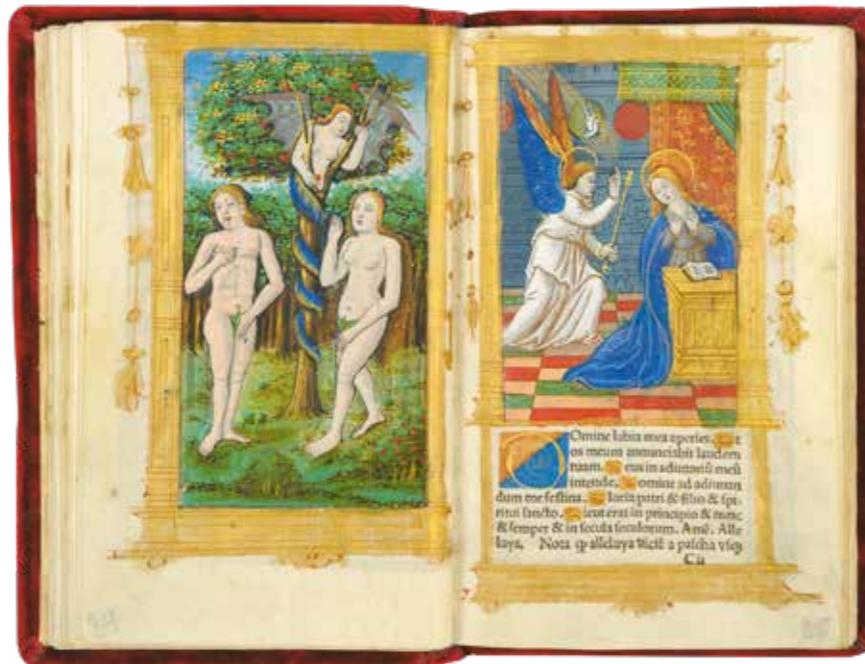 Omine labia mea aperies. Et
os meum annunciabit laudem
tuam. Deus in adiutoriū meū
intende. Domine ad adiuuan
dum me festina. Gloria patri & filio & spi
ritui sancto. Sicut erat in principio & nunc
& semper & in secula seculorum. Amē. Alle
luya. Nota ꝙ alleluya dicit a pascha vsqꝫ